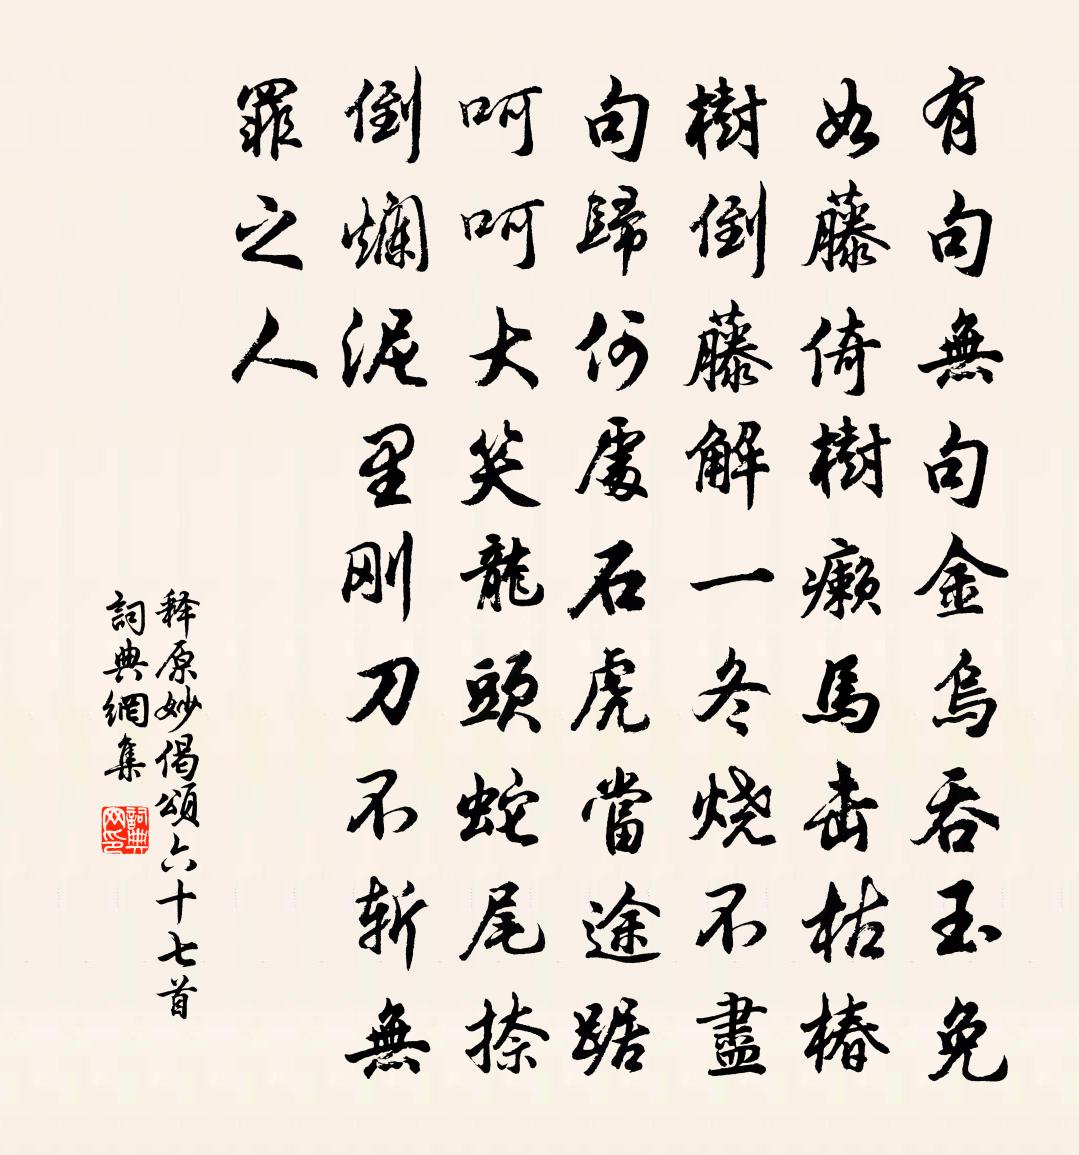 有句無句金烏吞玉兔
如藤倚樹癩馬击枯椿
樹倒藤解一冬烧不盡
句歸何處石虎當途踞
呵呵大笑龍頭蛇尾捺
倒爛泥里刚刀不斩無
罪之人
释原妙偈頌六十七首
詞典網集
詞典網印